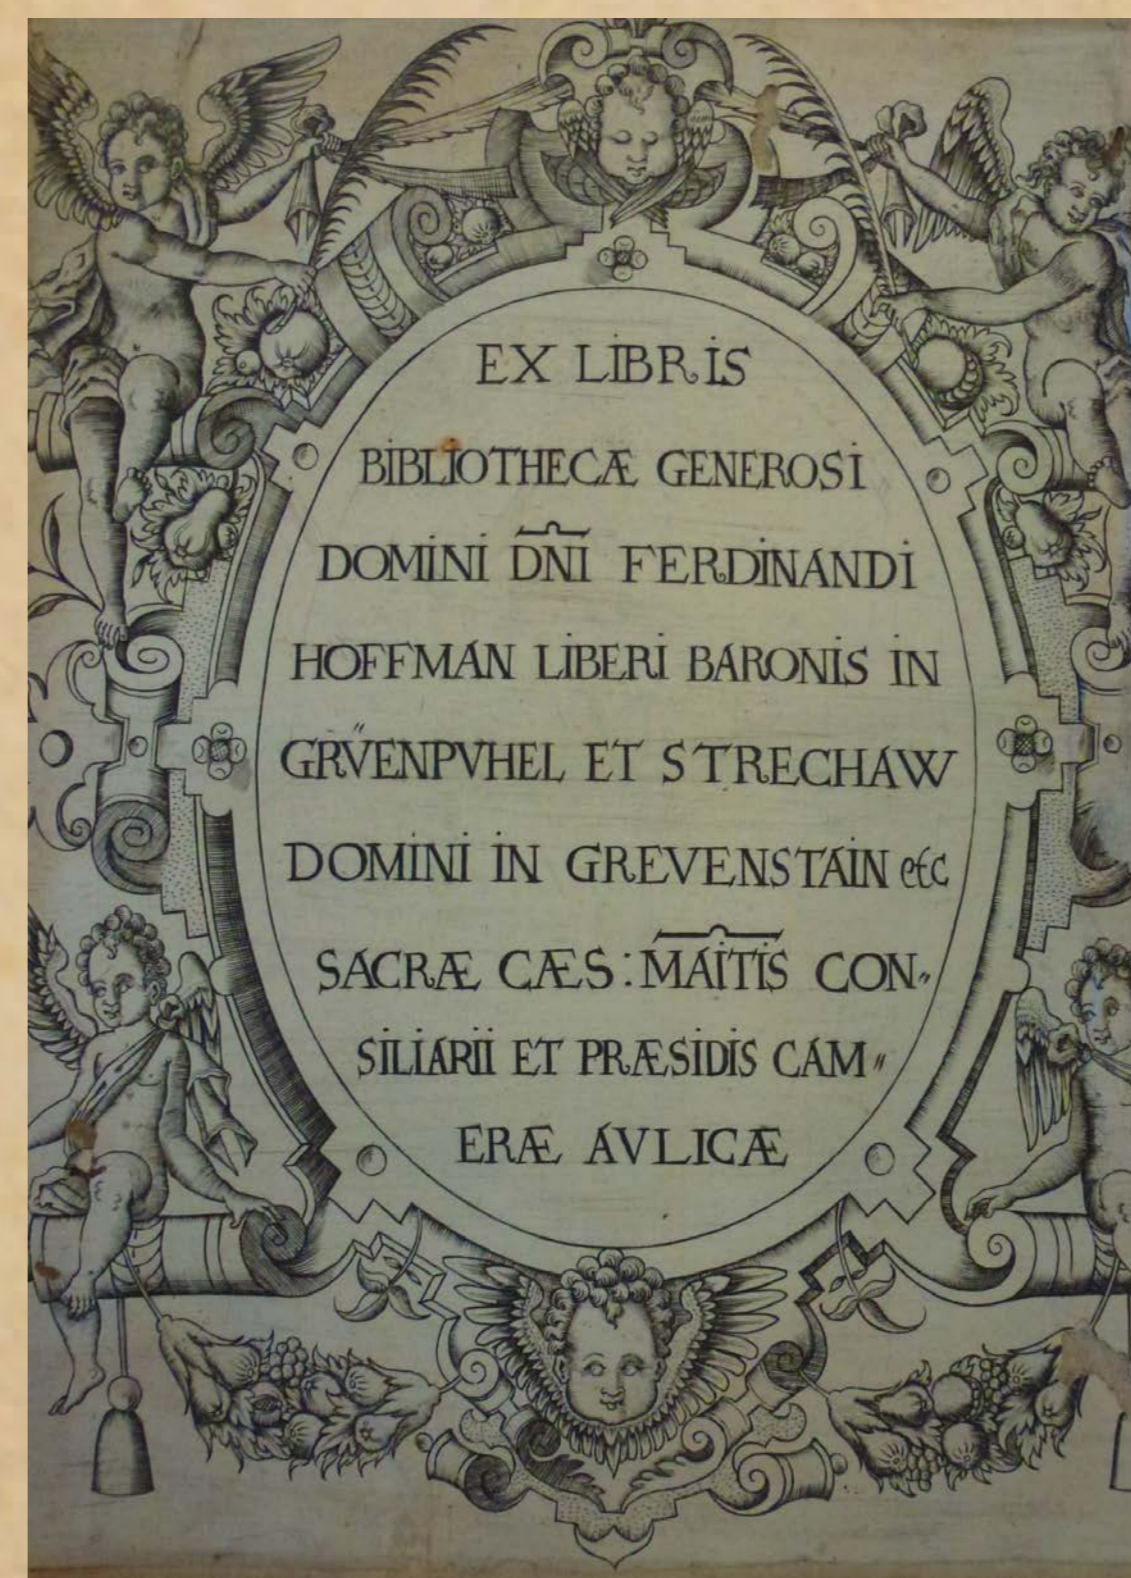 EX LIBRIS
BIBLIOTHECÆ GENEROSI
DOMINI DN̄I FERDINANDI
HOFFMAN LIBERI BARONIS IN
GRV̈ENPVHEL ET STRECHAW
DOMINI IN GREVENSTAIN etc
SACRÆ CÆS: MAI̅TIS CON„
SILIARII ET PRÆSIDIS CAM„
ERÆ AVLICÆ